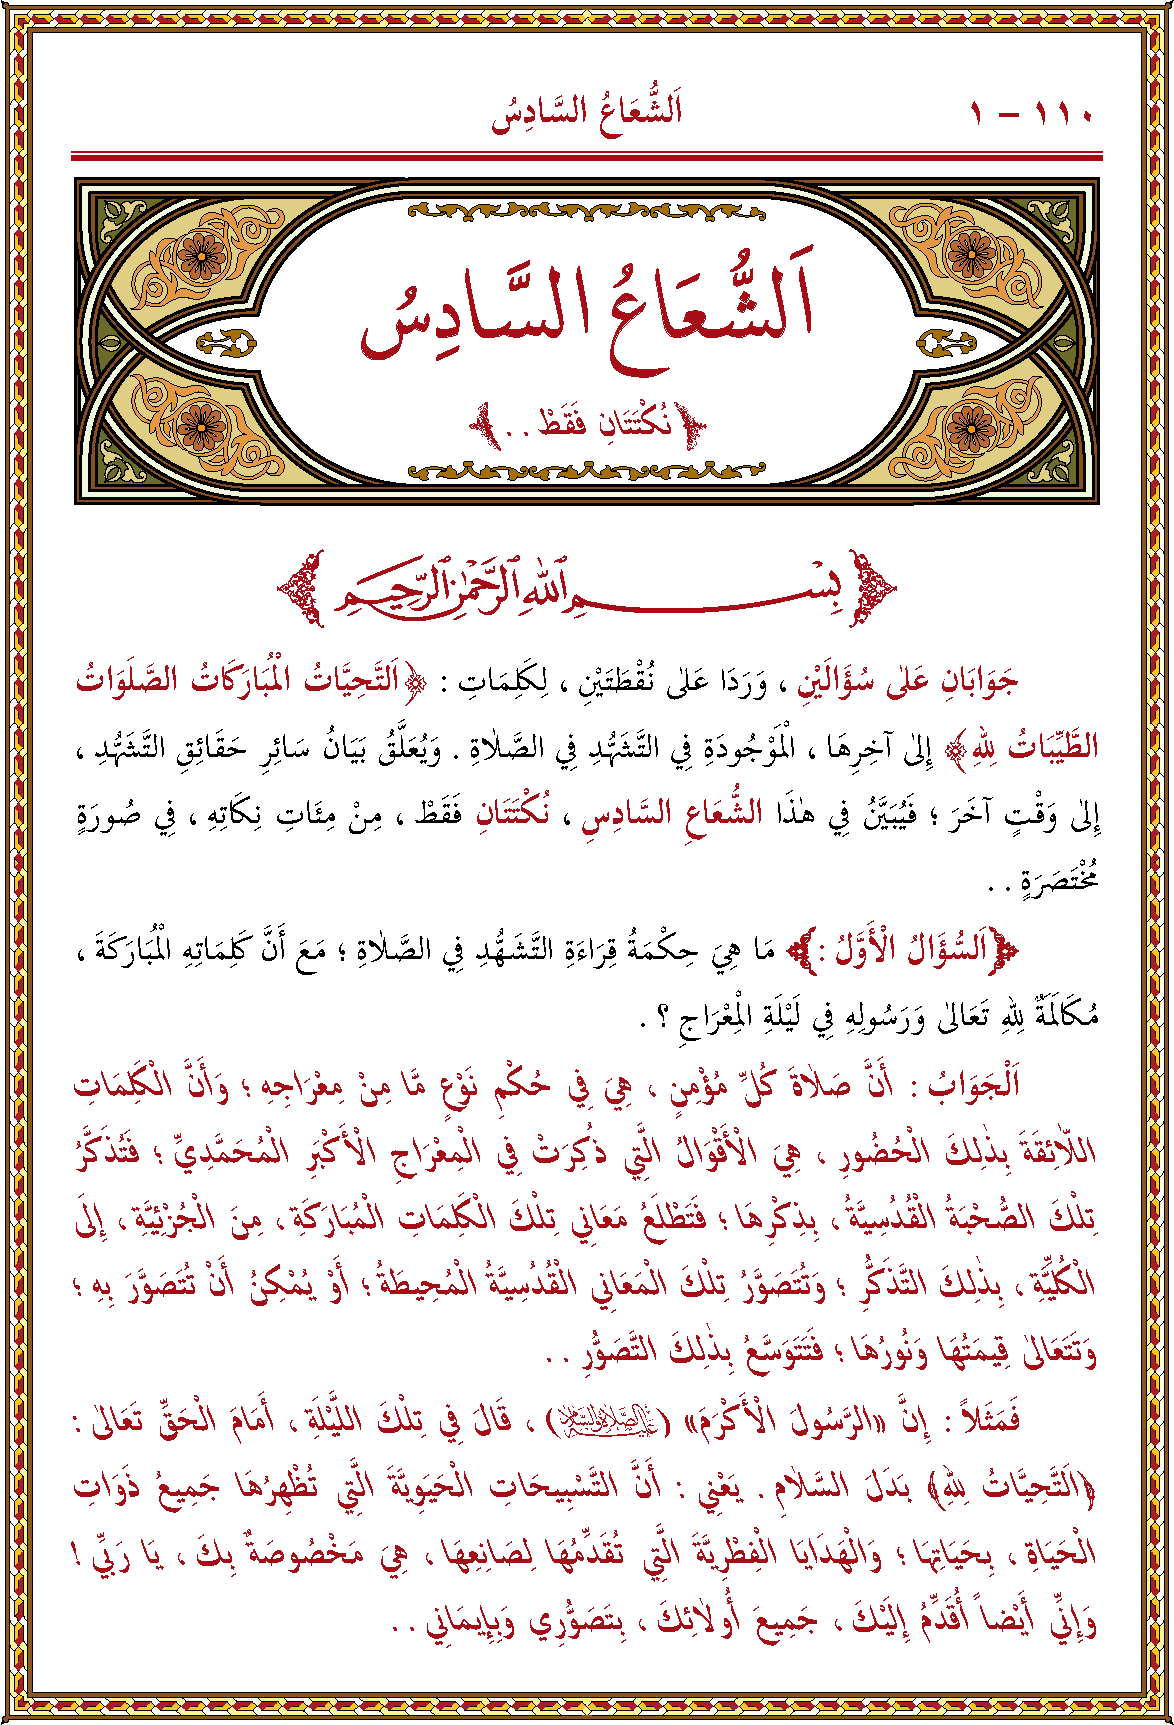 ١١٠ – ١ اَلشُّعَاعُ السَّادِسُ
اَلشُّعَاعُ السَّادِسُ
﴿نُكْتَتَانِ فَقَطْ . .﴾
﴿بِسْمِ اللهِ الرَّحْمٰنِ الرَّحِيمِ﴾
جَوَابَانِ عَلٰى سُؤَالَيْنِ ، وَرَدَا عَلٰى نُقْطَتَيْنِ ، لِكَلِمَاتِ : ﴿اَلتَّحِيَّاتُ الْمُبَارَكَاتُ الصَّلَوَاتُ
الطَّيِّبَاتُ لِلهِ﴾ إِلٰى آخِرِهَا ، الْمَوْجُودَةِ فِي التَّشَهُّدِ فِي الصَّلَاةِ . وَيُعَلَّقُ بَيَانُ سَائِرِ حَقَائِقِ التَّشَهُّدِ ،
إِلٰى وَقْتٍ آخَرَ ؛ فَيُبَيَّنُ فِي هٰذَا الشُّعَاعِ السَّادِسِ ، نُكْتَتَانِ فَقَطْ ، مِنْ مِئَاتِ نِكَاتِهِ ، فِي صُورَةٍ
مُخْتَصَرَةٍ . .
﴿اَلسُّؤَالُ الْأَوَّلُ :﴾ مَا هِيَ حِكْمَةُ قِرَاءَةِ التَّشَهُّدِ فِي الصَّلَاةِ ؛ مَعَ أَنَّ كَلِمَاتِهِ الْمُبَارَكَةَ ،
مُكَالَمَةٌ لِلهِ تَعَالٰى وَرَسُولِهِ فِي لَيْلَةِ الْمِعْرَاجِ ؟ .
اَلْجَوَابُ : أَنَّ صَلَاةَ كُلِّ مُؤْمِنٍ ، هِيَ فِي حُكْمِ نَوْعٍ مَّا مِنْ مِعْرَاجِهِ ؛ وَأَنَّ الْكَلِمَاتِ
اللَّائِقَةَ بِذٰلِكَ الْحُضُورِ ، هِيَ الْأَقْوَالُ الَّتِي ذُكِرَتْ فِي الْمِعْرَاجِ الْأَكْبَرِ الْمُحَمَّدِيِّ ؛ فَتُذَكَّرُ
تِلْكَ الصُّحْبَةُ الْقُدُسِيَّةُ ، بِذِكْرِهَا ؛ فَتَطْلَعُ مَعَانِي تِلْكَ الْكَلِمَاتِ الْمُبَارَكَةِ ، مِنَ الْجُزْئِيَّةِ ، إِلَى
الْكُلِّيَّةِ ، بِذٰلِكَ التَّذَكُّرِ ؛ وَتُتَصَوَّرُ تِلْكَ الْمَعَانِي الْقُدُسِيَّةُ الْمُحِيطَةُ ؛ أَوْ يُمْكِنُ أَنْ تُتَصَوَّرَ بِهِ ؛
وَتَتَعَالٰى قِيمَتُهَا وَنُورُهَا ؛ فَتَتَوَسَّعُ بِذٰلِكَ التَّصَوُّرِ . .
فَمَثَلاً : إِنَّ «الرَّسُولَ الْأَكْرَمَ» (عَلَيْهِ الصَّلَاةُ وَالسَّلَامُ) ، قَالَ فِي تِلْكَ اللَّيْلَةِ ، أَمَامَ الْحَقِّ تَعَالٰى :
﴿اَلتَّحِيَّاتُ لِلهِ﴾ بَدَلَ السَّلَامِ . يَعْنِي : أَنَّ التَّسْبِيحَاتِ الْحَيَوِيَّةَ الَّتِي تُظْهِرُهَا جَمِيعُ ذَوَاتِ
الْحَيَاةِ ، بِحَيَاتِهَا ؛ وَالْهَدَايَا الْفِطْرِيَّةَ الَّتِي تُقَدِّمُهَا لِصَانِعِهَا ، هِيَ مَخْصُوصَةٌ بِكَ ، يَا رَبِّي !
وَإِنِّي أَيْضاً أُقَدِّمُ إِلَيْكَ ، جَمِيعَ أُولٰئِكَ ، بِتَصَوُّرِي وَبِإِيمَانِي . .